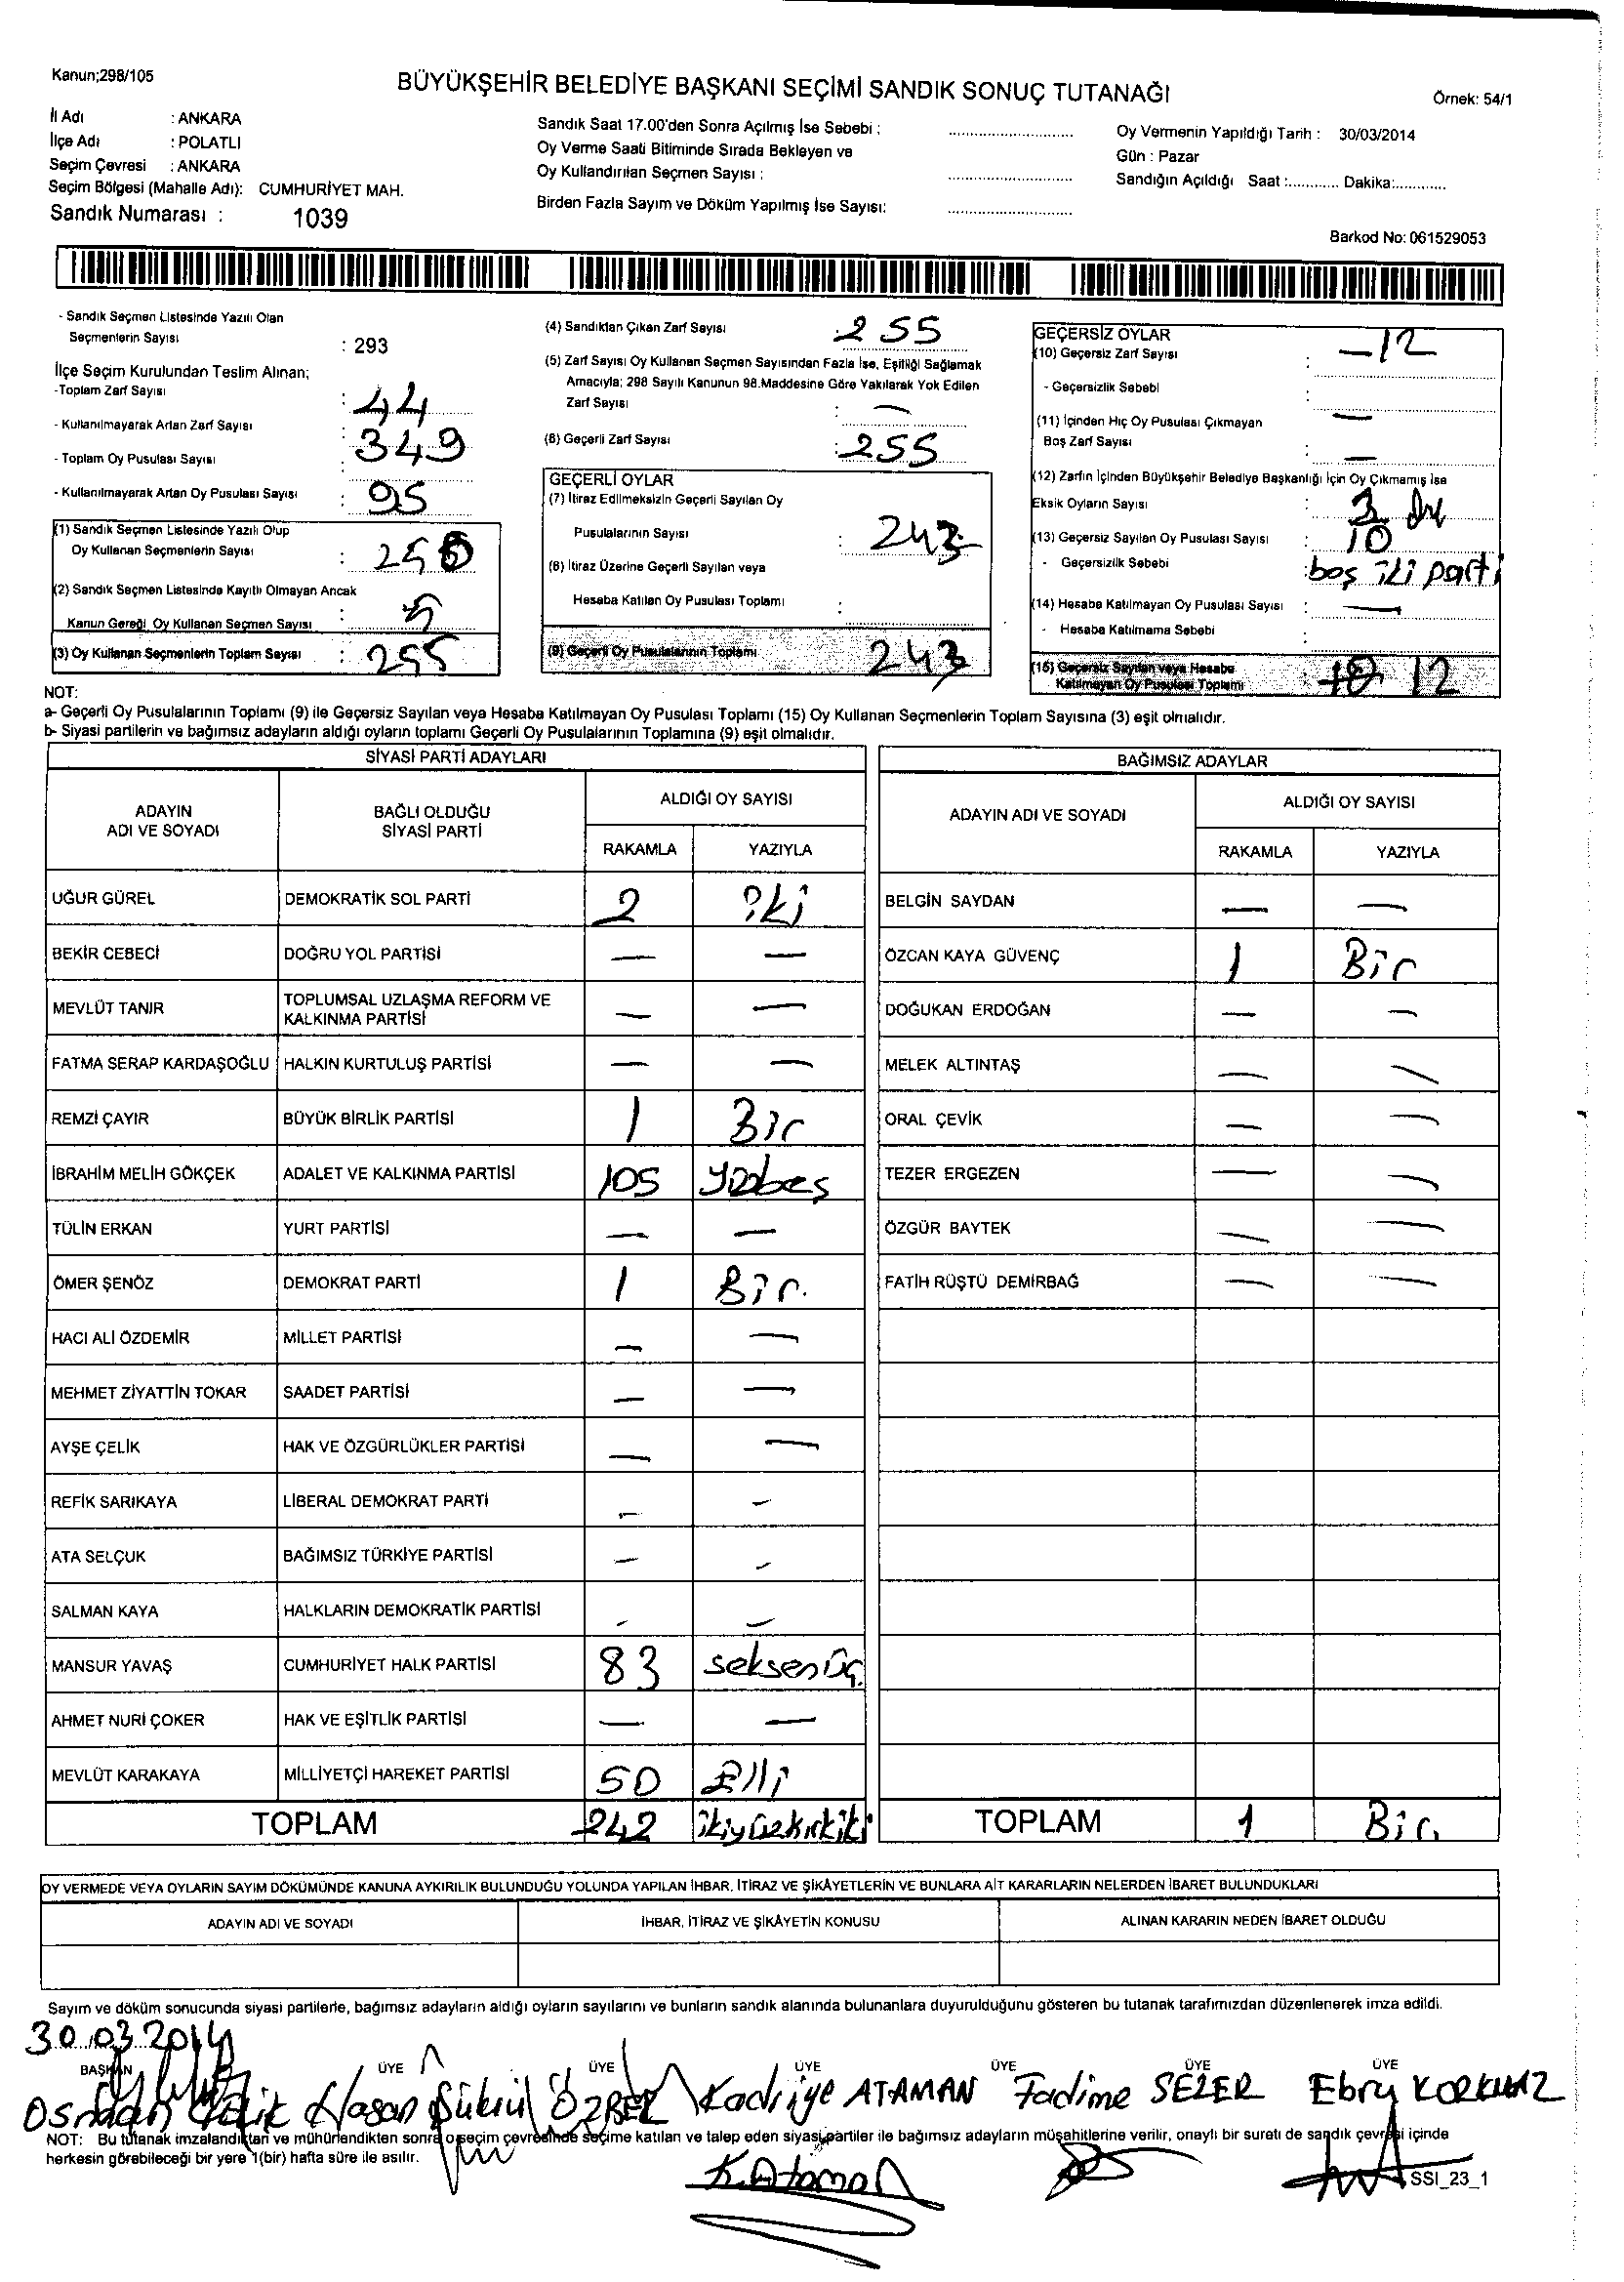 Kanun;298/105
BÜYÜKŞEHİR BELEDİYE BAŞKANI SEÇİMİ SANDIK SONUÇ TUTANAĞI
Örnek: 54/1
İl Adı : ANKARA
İlçe Adı : POLATLI
Seçim Çevresi : ANKARA
Seçim Bölgesi (Mahalle Adı): CUMHURİYET MAH.
Sandık Numarası : 1039
Sandık Saat 17.00'den Sonra Açılmış İse Sebebi :
Oy Verme Saati Bitiminde Sırada Bekleyen ve
Oy Kullandırılan Seçmen Sayısı :
Birden Fazla Sayım ve Döküm Yapılmış İse Sayısı:
Oy Vermenin Yapıldığı Tarih : 30/03/2014
Gün : Pazar
Sandığın Açıldığı Saat :........... Dakika:...........
Barkod No: 061529053
- Sandık Seçmen Listesinde Yazılı Olan
Seçmenlerin Sayısı : 293
İlçe Seçim Kurulundan Teslim Alınan;
-Toplam Zarf Sayısı : 44
- Kullanılmayarak Artan Zarf Sayısı : 349
- Toplam Oy Pusulası Sayısı :
- Kullanılmayarak Artan Oy Pusulası Sayısı : 95
(1) Sandık Seçmen Listesinde Yazılı Olup
Oy Kullanan Seçmenlerin Sayısı : 250
(2) Sandık Seçmen Listesinde Kayıtlı Olmayan Ancak
Kanun Gereği Oy Kullanan Seçmen Sayısı : 5
(3) Oy Kullanan Seçmenlerin Toplam Sayısı : 255
(4) Sandıktan Çıkan Zarf Sayısı : 255
(5) Zarf Sayısı Oy Kullanan Seçmen Sayısından Fazla İse, Eşitliği Sağlamak
Amacıyla; 298 Sayılı Kanunun 98.Maddesine Göre Yakılarak Yok Edilen
Zarf Sayısı : —
(6) Geçerli Zarf Sayısı : 255
GEÇERLİ OYLAR
(7) İtiraz Edilmeksizin Geçerli Sayılan Oy
Pusulalarının Sayısı : 243
(8) İtiraz Üzerine Geçerli Sayılan veya
Hesaba Katılan Oy Pusulası Toplamı :
(9) Geçerli Oy Pusulalarının Toplamı 243
GEÇERSİZ OYLAR
(10) Geçersiz Zarf Sayısı : —12
- Geçersizlik Sebebi :
(11) İçinden Hiç Oy Pusulası Çıkmayan
Boş Zarf Sayısı : —
(12) Zarfın İçinden Büyükşehir Belediye Başkanlığı İçin Oy Çıkmamış İse
Eksik Oyların Sayısı :
(13) Geçersiz Sayılan Oy Pusulası Sayısı : 10
- Geçersizlik Sebebi : boş iki parti
(14) Hesaba Katılmayan Oy Pusulası Sayısı : —
- Hesaba Katılmama Sebebi :
(15) Geçersiz Sayılan veya Hesaba
Katılmayan Oy Pusulası Toplamı : 10 12
NOT:
a- Geçerli Oy Pusulalarının Toplamı (9) ile Geçersiz Sayılan veya Hesaba Katılmayan Oy Pusulası Toplamı (15) Oy Kullanan Seçmenlerin Toplam Sayısına (3) eşit olmalıdır.
b- Siyasi partilerin ve bağımsız adayların aldığı oyların toplamı Geçerli Oy Pusulalarının Toplamına (9) eşit olmalıdır.
SİYASİ PARTİ ADAYLARI
ADAYIN ADI VE SOYADI
BAĞLI OLDUĞU SİYASİ PARTİ
ALDIĞI OY SAYISI
RAKAMLA YAZIYLA
UĞUR GÜREL DEMOKRATİK SOL PARTİ 2 iki
BEKİR CEBECİ DOĞRU YOL PARTİSİ — —
MEVLÜT TANIR TOPLUMSAL UZLAŞMA REFORM VE KALKINMA PARTİSİ — —
FATMA SERAP KARDAŞOĞLU HALKIN KURTULUŞ PARTİSİ — —
REMZİ ÇAYIR BÜYÜK BİRLİK PARTİSİ 1 Bir
İBRAHİM MELİH GÖKÇEK ADALET VE KALKINMA PARTİSİ 105 yüzbeş
TÜLİN ERKAN YURT PARTİSİ — —
ÖMER ŞENÖZ DEMOKRAT PARTİ 1 Bir.
HACI ALİ ÖZDEMİR MİLLET PARTİSİ — —
MEHMET ZİYATTİN TOKAR SAADET PARTİSİ — —
AYŞE ÇELİK HAK VE ÖZGÜRLÜKLER PARTİSİ — —
REFİK SARIKAYA LİBERAL DEMOKRAT PARTİ — —
ATA SELÇUK BAĞIMSIZ TÜRKİYE PARTİSİ — —
SALMAN KAYA HALKLARIN DEMOKRATİK PARTİSİ — —
MANSUR YAVAŞ CUMHURİYET HALK PARTİSİ 83 seksenüç.
AHMET NURİ ÇOKER HAK VE EŞİTLİK PARTİSİ — —
MEVLÜT KARAKAYA MİLLİYETÇİ HAREKET PARTİSİ 50 Elli
TOPLAM 242 ikiyüzkırkiki
BAĞIMSIZ ADAYLAR
ADAYIN ADI VE SOYADI
ALDIĞI OY SAYISI
RAKAMLA YAZIYLA
BELGİN SAYDAN — —
ÖZCAN KAYA GÜVENÇ 1 Bir
DOĞUKAN ERDOĞAN — —
MELEK ALTINTAŞ — —
ORAL ÇEVİK — —
TEZER ERGEZEN — —
ÖZGÜR BAYTEK — —
FATİH RÜŞTÜ DEMİRBAĞ — —
TOPLAM 1 Bir.
OY VERMEDE VEYA OYLARIN SAYIM DÖKÜMÜNDE KANUNA AYKIRILIK BULUNDUĞU YOLUNDA YAPILAN İHBAR, İTİRAZ VE ŞİKÂYETLERİN VE BUNLARA AİT KARARLARIN NELERDEN İBARET BULUNDUKLARI
ADAYIN ADI VE SOYADI İHBAR, İTİRAZ VE ŞİKÂYETİN KONUSU ALINAN KARARIN NEDEN İBARET OLDUĞU
Sayım ve döküm sonucunda siyasi partilerle, bağımsız adayların aldığı oyların sayılarını ve bunların sandık alanında bulunanlara duyurulduğunu gösteren bu tutanak tarafımızdan düzenlenerek imza edildi.
30.03.2014
BAŞKAN ÜYE ÜYE ÜYE ÜYE ÜYE ÜYE
Hasan Şükrü ÖZBEK Kadriye ATAMAN Fadime SEZER Ebru KORKMAZ
NOT: Bu tutanak imzalandıktan ve mühürlendikten sonra o seçim çevresinde seçime katılan ve talep eden siyasi partiler ile bağımsız adayların müşahitlerine verilir, onaylı bir sureti de sandık çevresi içinde
herkesin görebileceği bir yere 1(bir) hafta süre ile asılır.
K.Ataman
SSI_23_1